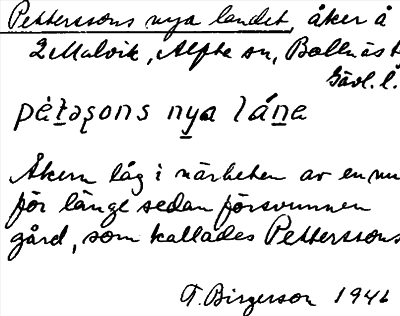 Petterssons nya landet, åker å
2 Malvik, Alfta sn, Bollnäs t
Gävl. l.
pètəʂons nya láne
Åkern låg i närheten av en nu
för länge sedan försvunnen
gård, som kallades Petterssons
T. Birgerson 1946